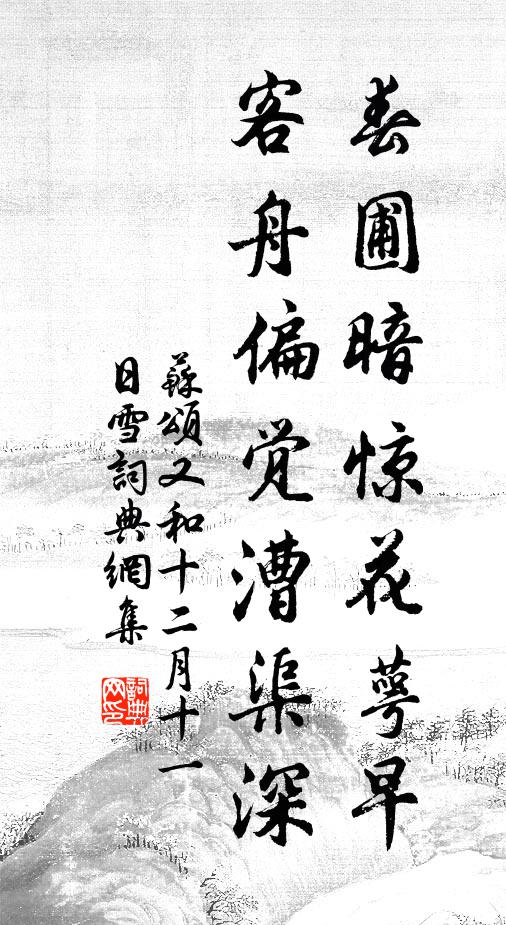 春圃暗惊花萼早
客舟偏觉漕渠深
蘇頌又和十二月十一
日雪詞典網集
詞典网印